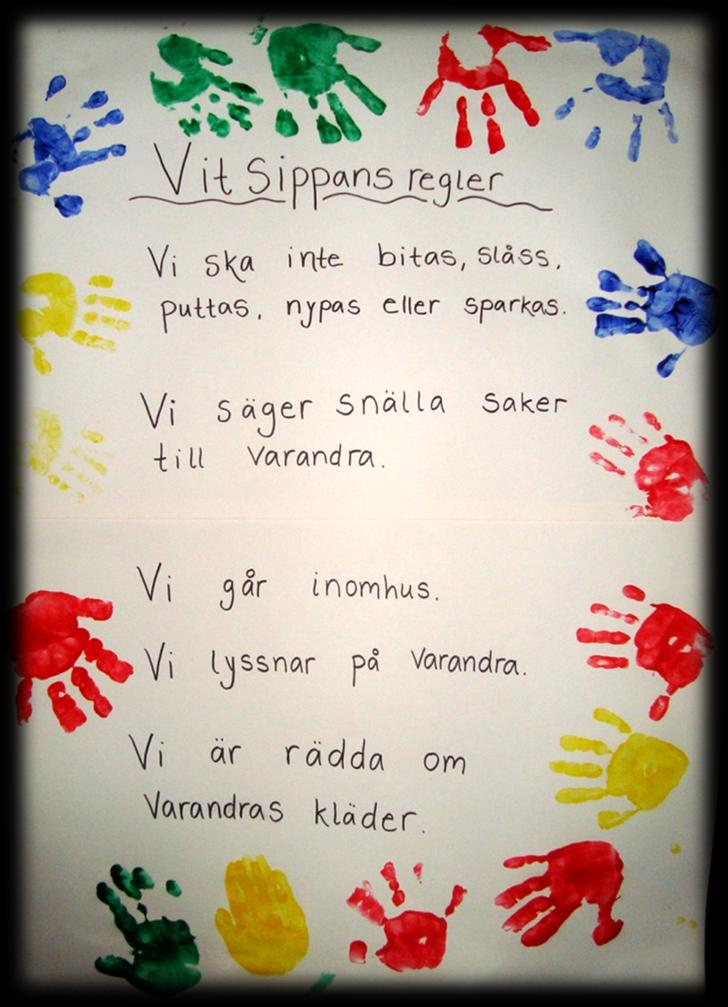 Vit Sippans regler
Vi ska inte bitas, slåss,
puttas, nypas eller sparkas.
Vi säger snälla saker
till varandra.
Vi går inomhus.
Vi lyssnar på varandra.
Vi är rädda om
varandras kläder.